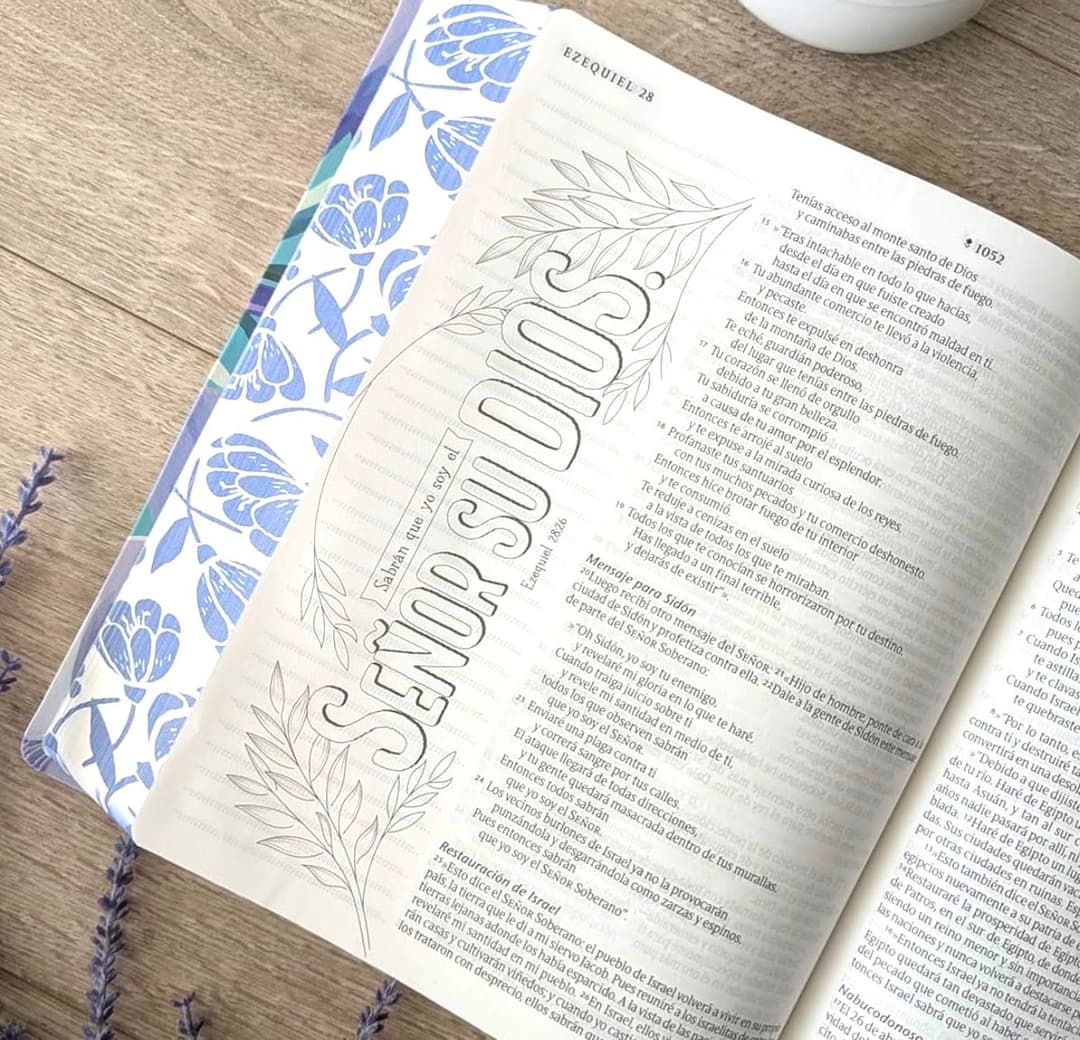 EZEQUIEL 28
1052
Sabrán que yo soy el
SEÑOR SU DIOS.
Ezequiel 28:26
Tenías acceso al monte santo de Dios
y caminabas entre las piedras de fuego.
15 »"Eras intachable en todo lo que hacías,
desde el día en que fuiste creado
hasta el día en que se encontró maldad en ti.
16 Tu abundante comercio te llevó a la violencia,
y pecaste.
Entonces te expulsé en deshonra
de la montaña de Dios.
Te eché, guardián poderoso,
del lugar que tenías entre las piedras de fuego.
17 Tu corazón se llenó de orgullo
debido a tu gran belleza.
Tu sabiduría se corrompió
a causa de tu amor por el esplendor.
Entonces te arrojé al suelo
y te expuse a la mirada curiosa de los reyes.
18 Profanaste tus santuarios
con tus muchos pecados y tu comercio deshonesto.
Entonces hice brotar fuego de tu interior
y te consumió.
Te reduje a cenizas en el suelo
a la vista de todos los que te miraban.
19 Todos los que te conocían se horrorizaron por tu destino.
Has llegado a un final terrible,
y dejarás de existir"».
Mensaje para Sidón
20 Luego recibí otro mensaje del SEÑOR: 21 «Hijo de hombre, ponte de cara a la
ciudad de Sidón y profetiza contra ella. 22 Dale a la gente de Sidón este mensaje
de parte del SEÑOR Soberano:
»"Oh Sidón, yo soy tu enemigo,
y revelaré mi gloria en lo que te haré.
Cuando traiga juicio sobre ti
y revele mi santidad en medio de ti,
todos los que observen sabrán
que yo soy el SEÑOR.
23 Enviaré una plaga contra ti
y correrá sangre por tus calles.
El ataque llegará de todas direcciones,
y tu gente quedará masacrada dentro de tus murallas.
Entonces todos sabrán
que yo soy el SEÑOR.
24 Los vecinos burlones de Israel ya no la provocarán
punzándola y desgarrándola como zarzas y espinos.
Pues entonces sabrán
que yo soy el SEÑOR Soberano".
Restauración de Israel
25 »Esto dice el SEÑOR Soberano: el pueblo de Israel volverá a vivir en su propio
país, la tierra que le di a mi siervo Jacob. Pues reuniré a los israelitas de
tierras lejanas adonde los había esparcido. A la vista de las
revelaré mi santidad en mi pueblo. 26 En Israel, ellos
rán casas y cultivarán viñedos; y cuando yo
los trataron con desprecio, ellos sabrán
5
6 Todos
7 Cuando
te clavas
Cuando Israel
te quebraste
8 »"Por lo tanto,
contra ti y destruiré
convertirá en una
»"Debido a que dijiste
de tu río. Haré de Egipto
hasta Asuán, y tan al sur
años nadie pasará por allí, ni
biada. 12 Haré de Egipto un
das. Sus ciudades quedarán
por otras ciudades en ruinas.
13 »Esto también dice el SEÑOR
egipcios nuevamente a su patria
14 Restauraré la prosperidad de
de Patros, en el sur de Egipto, de donde
siendo un reino menor y sin importancia
las naciones y nunca volverá a destacarse
16 »Entonces Israel ya no tendrá la
Egipto quedará tan devastado que
del pecado que cometió al haber
tonces Israel sabrá que yo
Nabucodonosor
17 El 26 de